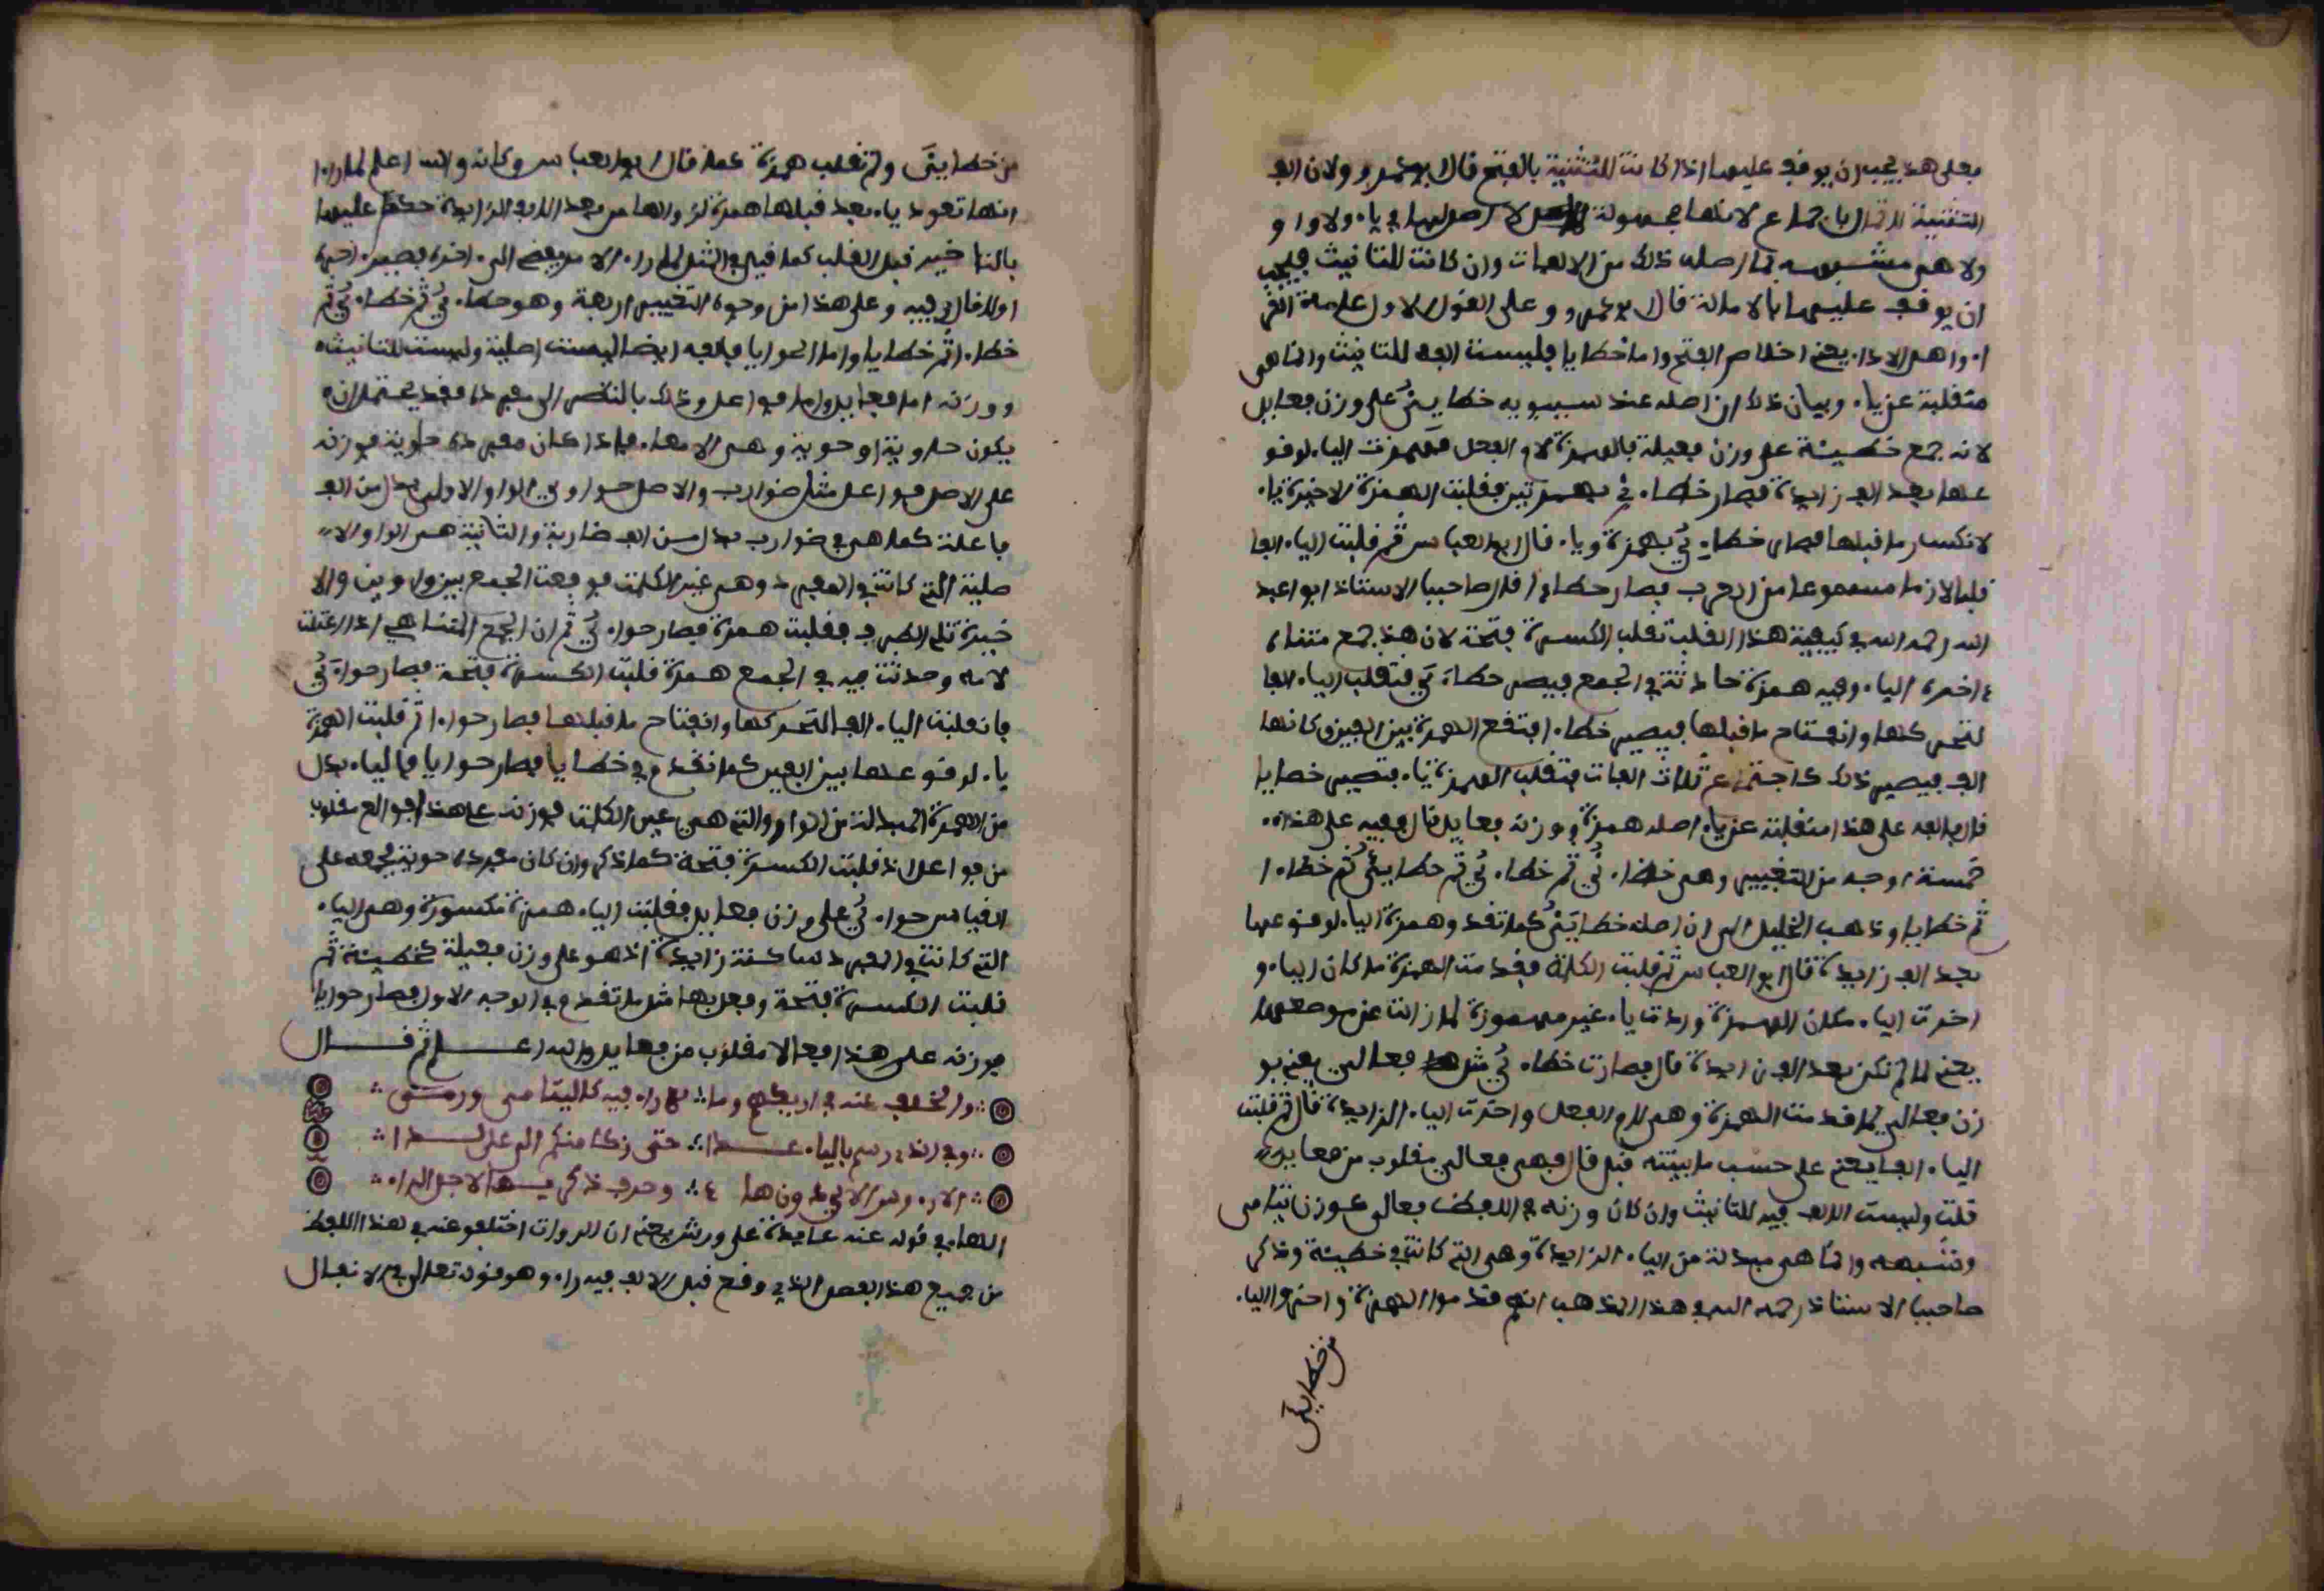 فعلى هذا يجب ان يوقف عليها اذا كانت للتثنية بالفتح قال ابو عمرو ولان الف
التثنية لا تمال باجماع لانها مجهولة لا اصل لها في ياء ولا واو
ولا هي مشبهة بما اصله ذلك من الالفات وان كانت للتانيث فيجب
ان يوقف عليها بالامالة قال ابو عمرو وعلى القول الاول عامة القرا
ء واهل الاداء يعني اخلاص الفتح واما خطايا فليست الفه للتانيث وانما هي
منقلبة عن ياء وبيان ذلك ان اصله عند سيبويه خطايئ على وزن فعايل
لانه جمع خطيئة على وزن فعيلة بالهمزة لام الفعل فهمزت الياء لوقو
عها بعد الف زايدة فصار خطاءئ بهمزتين فقلبت الهمزة الاخيرة ياء
لانكسار ما قبلها فصار خطاءي بهمزة وياء قال ابو العباس ثم قلبت الياء الفا
قلبا لازما مسموعا من العرب فصار خطاءا قال صاحبنا الاستاذ ابو عبد
الله رحمه الله في كيفية هذا القلب تقلب الكسرة فتحة لان هذا جمع متناه
في اخره الياء وفيه همزة حادثة في الجمع فيصير خطاءي فتقلب الياء الفا
لتحركها وانفتاح ما قبلها فيصير خطاءا فتقع الهمزة بين الفين وكانها
الف فيصير ذلك كاجتماع ثلاث الفات فتقلب الهمزة ياء فتصير خطايا
قال فالفه على هذا منقلبة عن ياء اصله همزة ووزنه فعايل قال ففيه على هذا
خمسة اوجه من التغيير وهي خطاءئ ثم خطاءي ثم خطايئ ثم خطاءا
ثم خطايا وذهب الخليل الى ان اصله خطايئ كما تقدم وهمزة الياء لوقوعها
بعد الف زايدة قال ابو العباس ثم قلبت الكلمة فقدمت الهمزة مكان الياء و
اخرت الياء مكان الهمزة وردت ياء غير مهموزة لما زالت عن موضعها
يعني لما لم تكن بعد الف زايدة قال فصارت خطاءي مثل فعالي يعني بو
زن فعالي لما قدمت الهمزة وهي لام الفعل واخرت الياء الزايدة قال ثم قلبت
الياء الفا يعني على حسب ما بينته قبل قال فهي فعالي مقلوب من فعايل
قلت وليست الالف فيه للتانيث وان كان وزنه في اللفظ فعالى كوزن يتامى
وتشبهه وانما هي مبدلة من الياء الزايدة وهي التي كانت في خطيئة وذكر
صاحبنا الاستاذ رحمه الله في هذا المذهب انهم قدموا الهمزة واخروا الياء
من خطايئ
من خطايئ ولم تقلب همزة كما قال ابو العباس وكانه والله اعلم لما راوا
انها تعود ياء بعد قبلها همزة لزوالها من بعد الالف الزايدة حكم عليها
بالتاخير قبل القلب كما قيل في المثل لما راء الامر يفضي الى اخره فصير اخره
اولا قال ففيه وعلى هذا من وجوه التغيير اربعة وهو خطايئ ثم خطاءي ثم
خطاءا ثم خطايا واما الحوايا فالفه ايضا ليست اصلية وليست للتانيث
ووزنه اما فعايل واما فواعل وذلك بالنظر الى مفرده فقد يحتمل ان
يكون حاوية او حوية وهي الامعاء فاذا كان مفرده حاوية فوزنه
على الاصل فواعل مثل ضوارب والاصل حواوي الواو الاولى بدل من الف
فاعلة كما هي في ضوارب بدل من الف ضاربة والثانية هي الواو الا
صلية التي كانت في المفرد وهي عين الكلمة فوقعت الف الجمع بين واوين والا
خيرة تلي الطرف فقلبت همزة فصار حواءي ثم ان الجمع المتناهي اذا اعتلت
لامه وحدثت فيه في الجمع همزة قلبت الكسرة فتحة فصار حواءي
فانقلبت الياء الفا لتحركها وانفتاح ما قبلها فصار حواءا ثم قلبت الهمزة
ياء لوقوعها بين الفين كما تقدم في خطايا فصار حوايا فالياء بدل
من الهمزة المبدلة من الواو والتي هي عين الكلمة فوزنه على هذا فوالع مقلوب
من فواعل اذ قلبت الكسرة فتحة كما ذكر وان كان مفرده حوية فجمعه على
القياس حواءي على وزن فعايل فقلبت الياء همزة مكسورة وهي الياء
التي كانت في المفرد ساكنة زايدة اذ هو على وزن فعيلة كخطيئة ثم
قلبت الكسرة فتحة وفعل بها مثل ما تقدم في الوجه الاول فصار حوايا
فوزنه على هذا فعالا مقلوب من فعايل والله اعلم ثم قال
والخلف عنه في اريكهم وما راء فيه كاليتامى ورمى
وفي الذي رسم بالياء عدا حتى زكا منكم الى على لدا
الا رءوس الاي دون ها وحرف ذكريها لاجل الراء
الهاء في قوله عنه عايدة على ورش يعني ان الروات اختلفوا عنه في هذا اللفظ
من جميع هذا الفصل الذي وقع قبل الالف فيه راء وهو قوله تعالى في الانفال